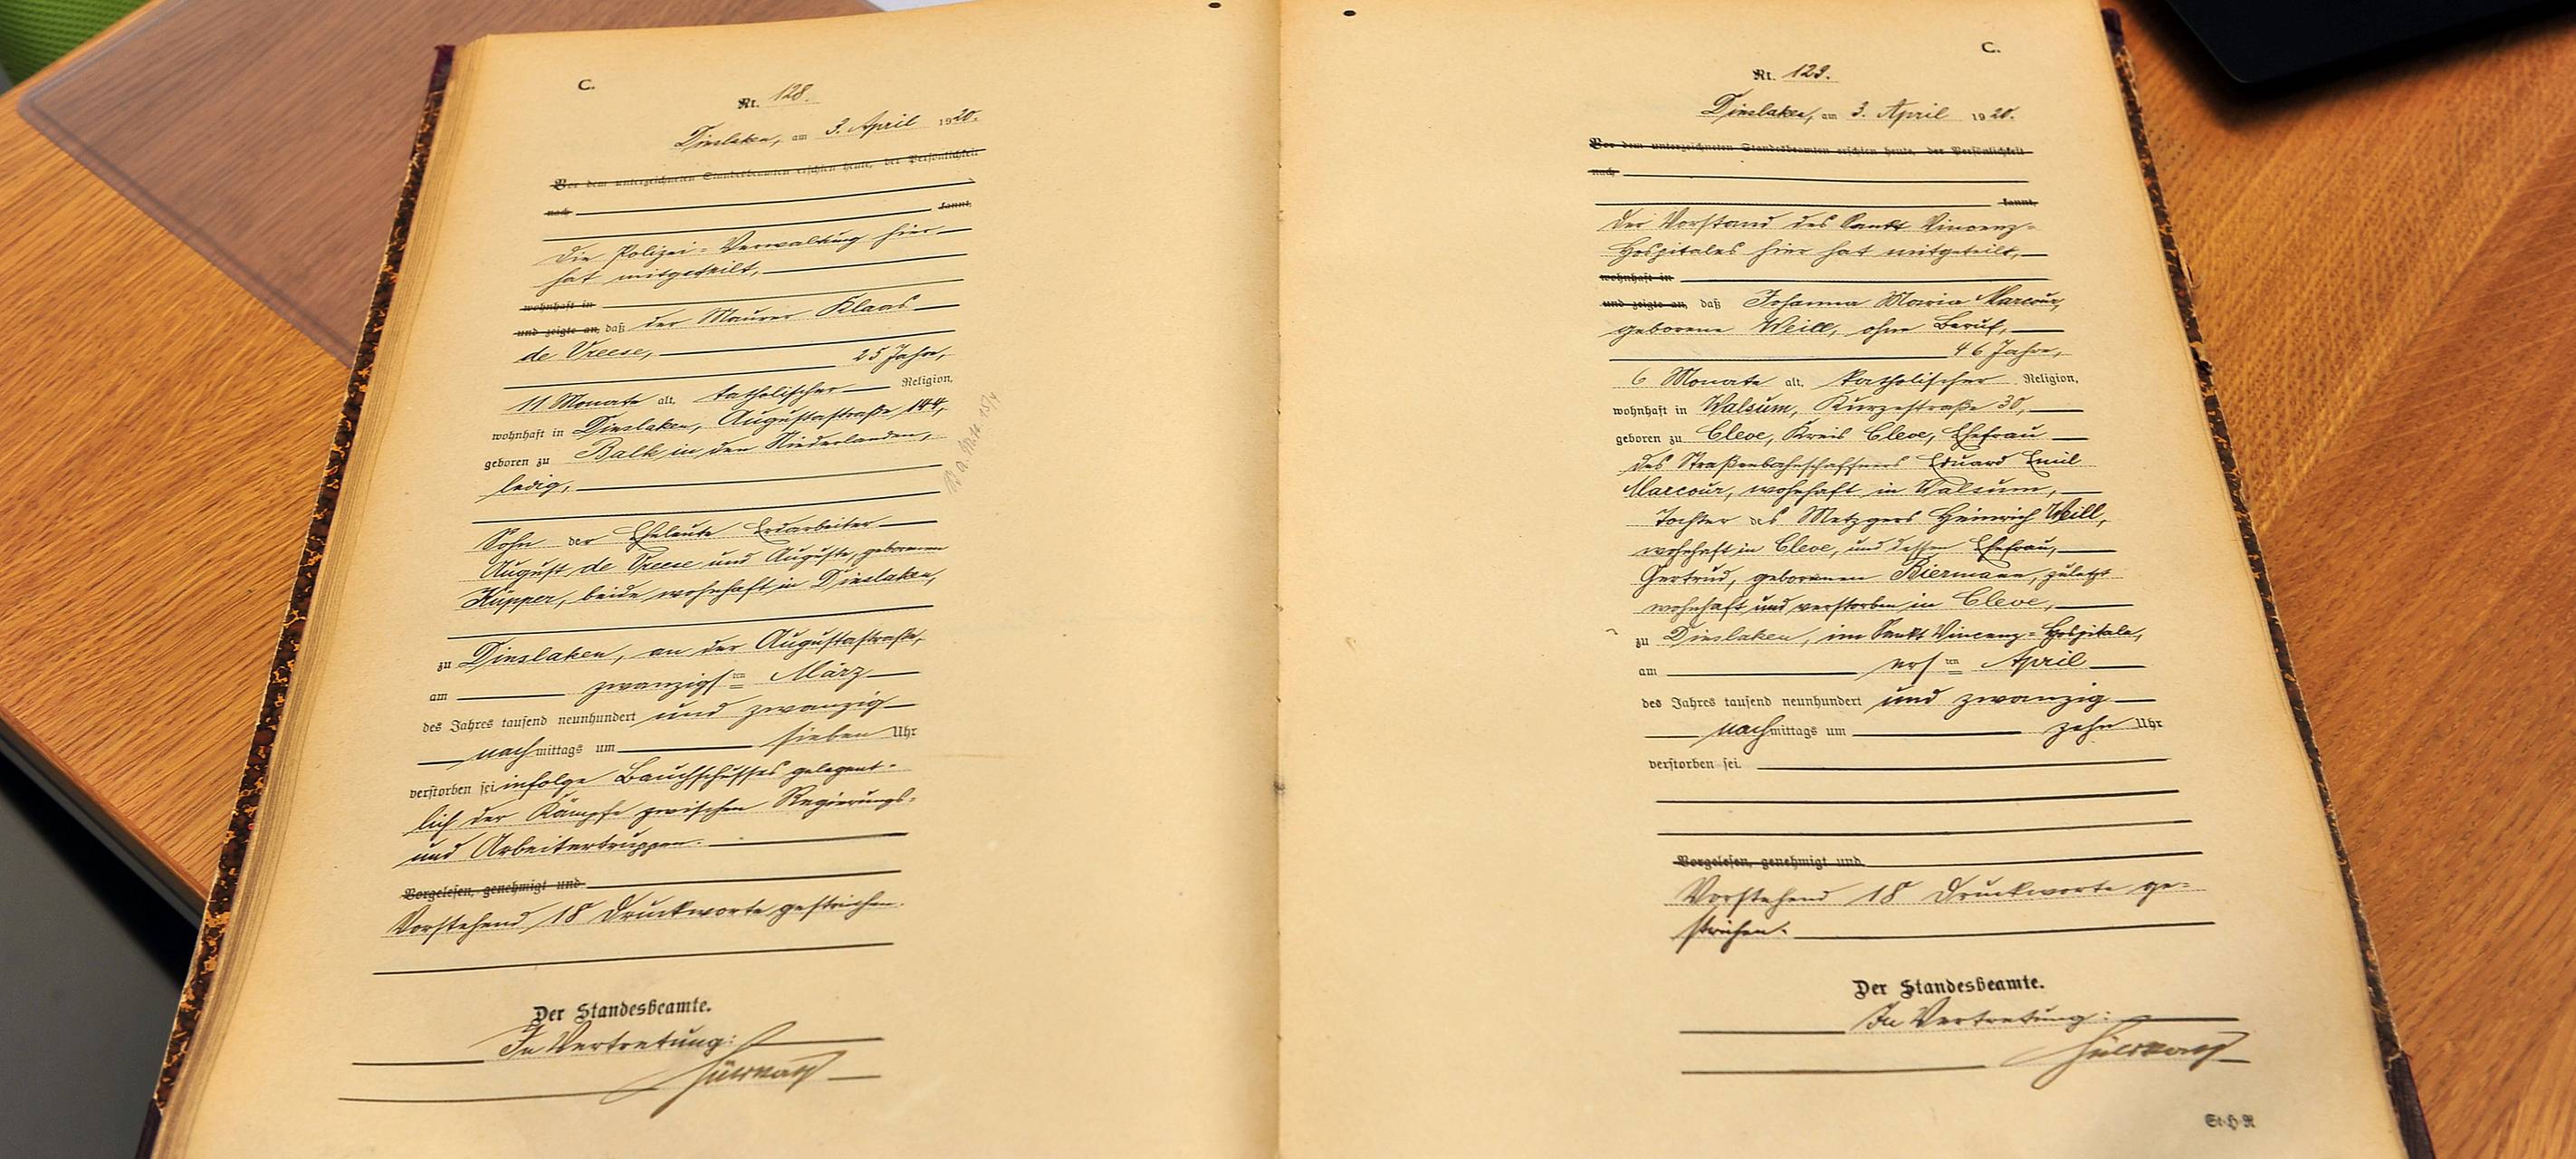 C.
Nr. 128.
Dinslaken, am 3. April 1920.
Vor dem unterzeichneten Standesbeamten erschien heute, der Persönlichkeit
nach
kannt,
Die Polizei=Verwaltung hier
hat mitgeteilt,
wohnhaft in
und zeigte an, daß der Maurer Klaas
de Vreese,
25 Jahre,
11 Monate alt, katholischer Religion,
wohnhaft in Dinslaken, Augustastraße 144,
geboren zu Balk in den Niederlanden,
ledig,
Sohn der Eheleute Erdarbeiter
August de Vreese und Auguste, geborenen
Küpper, beide wohnhaft in Dinslaken,
zu Dinslaken, an der Augustastraße,
am zwanzigsten März
des Jahres tausend neunhundert und zwanzig
nachmittags um sieben Uhr
verstorben sei infolge Bauchschusses gelegent-
lich der Kämpfe zwischen Regierungs-
und Arbeitertruppen.
Vorgelesen, genehmigt und
Vorstehend 18 Druckworte gestrichen.
Der Standesbeamte.
In Vertretung:
C.
Nr. 129.
Dinslaken, am 3. April 1920.
Vor dem unterzeichneten Standesbeamten erschien heute, der Persönlichkeit
nach
kannt,
Der Vorstand des Sankt Vincenz-
Hospitales hier hat mitgeteilt,
wohnhaft in
und zeigte an, daß Johanna Maria Marcour,
geborene Weill, ohne Beruf,
46 Jahre,
6 Monate alt, katholischer Religion,
wohnhaft in Walsum, Kurzestraße 30,
geboren zu Cleve, Kreis Cleve, Ehefrau
des Straßenbahnschaffners Eduard Emil
Marcour, wohnhaft in Walsum,
Tochter des Metzgers Heinrich Weill,
wohnhaft in Cleve, und dessen Ehefrau,
Gertrud, geborenen Biermann, zuletzt
wohnhaft und verstorben in Cleve,
zu Dinslaken, im Sankt Vincenz=Hospitale,
am ersten April
des Jahres tausend neunhundert und zwanzig
nachmittags um zehn Uhr
verstorben sei.
Vorgelesen, genehmigt und
Vorstehend 18 Druckworte ge-
strichen.
Der Standesbeamte.
In Vertretung:
St.H.R